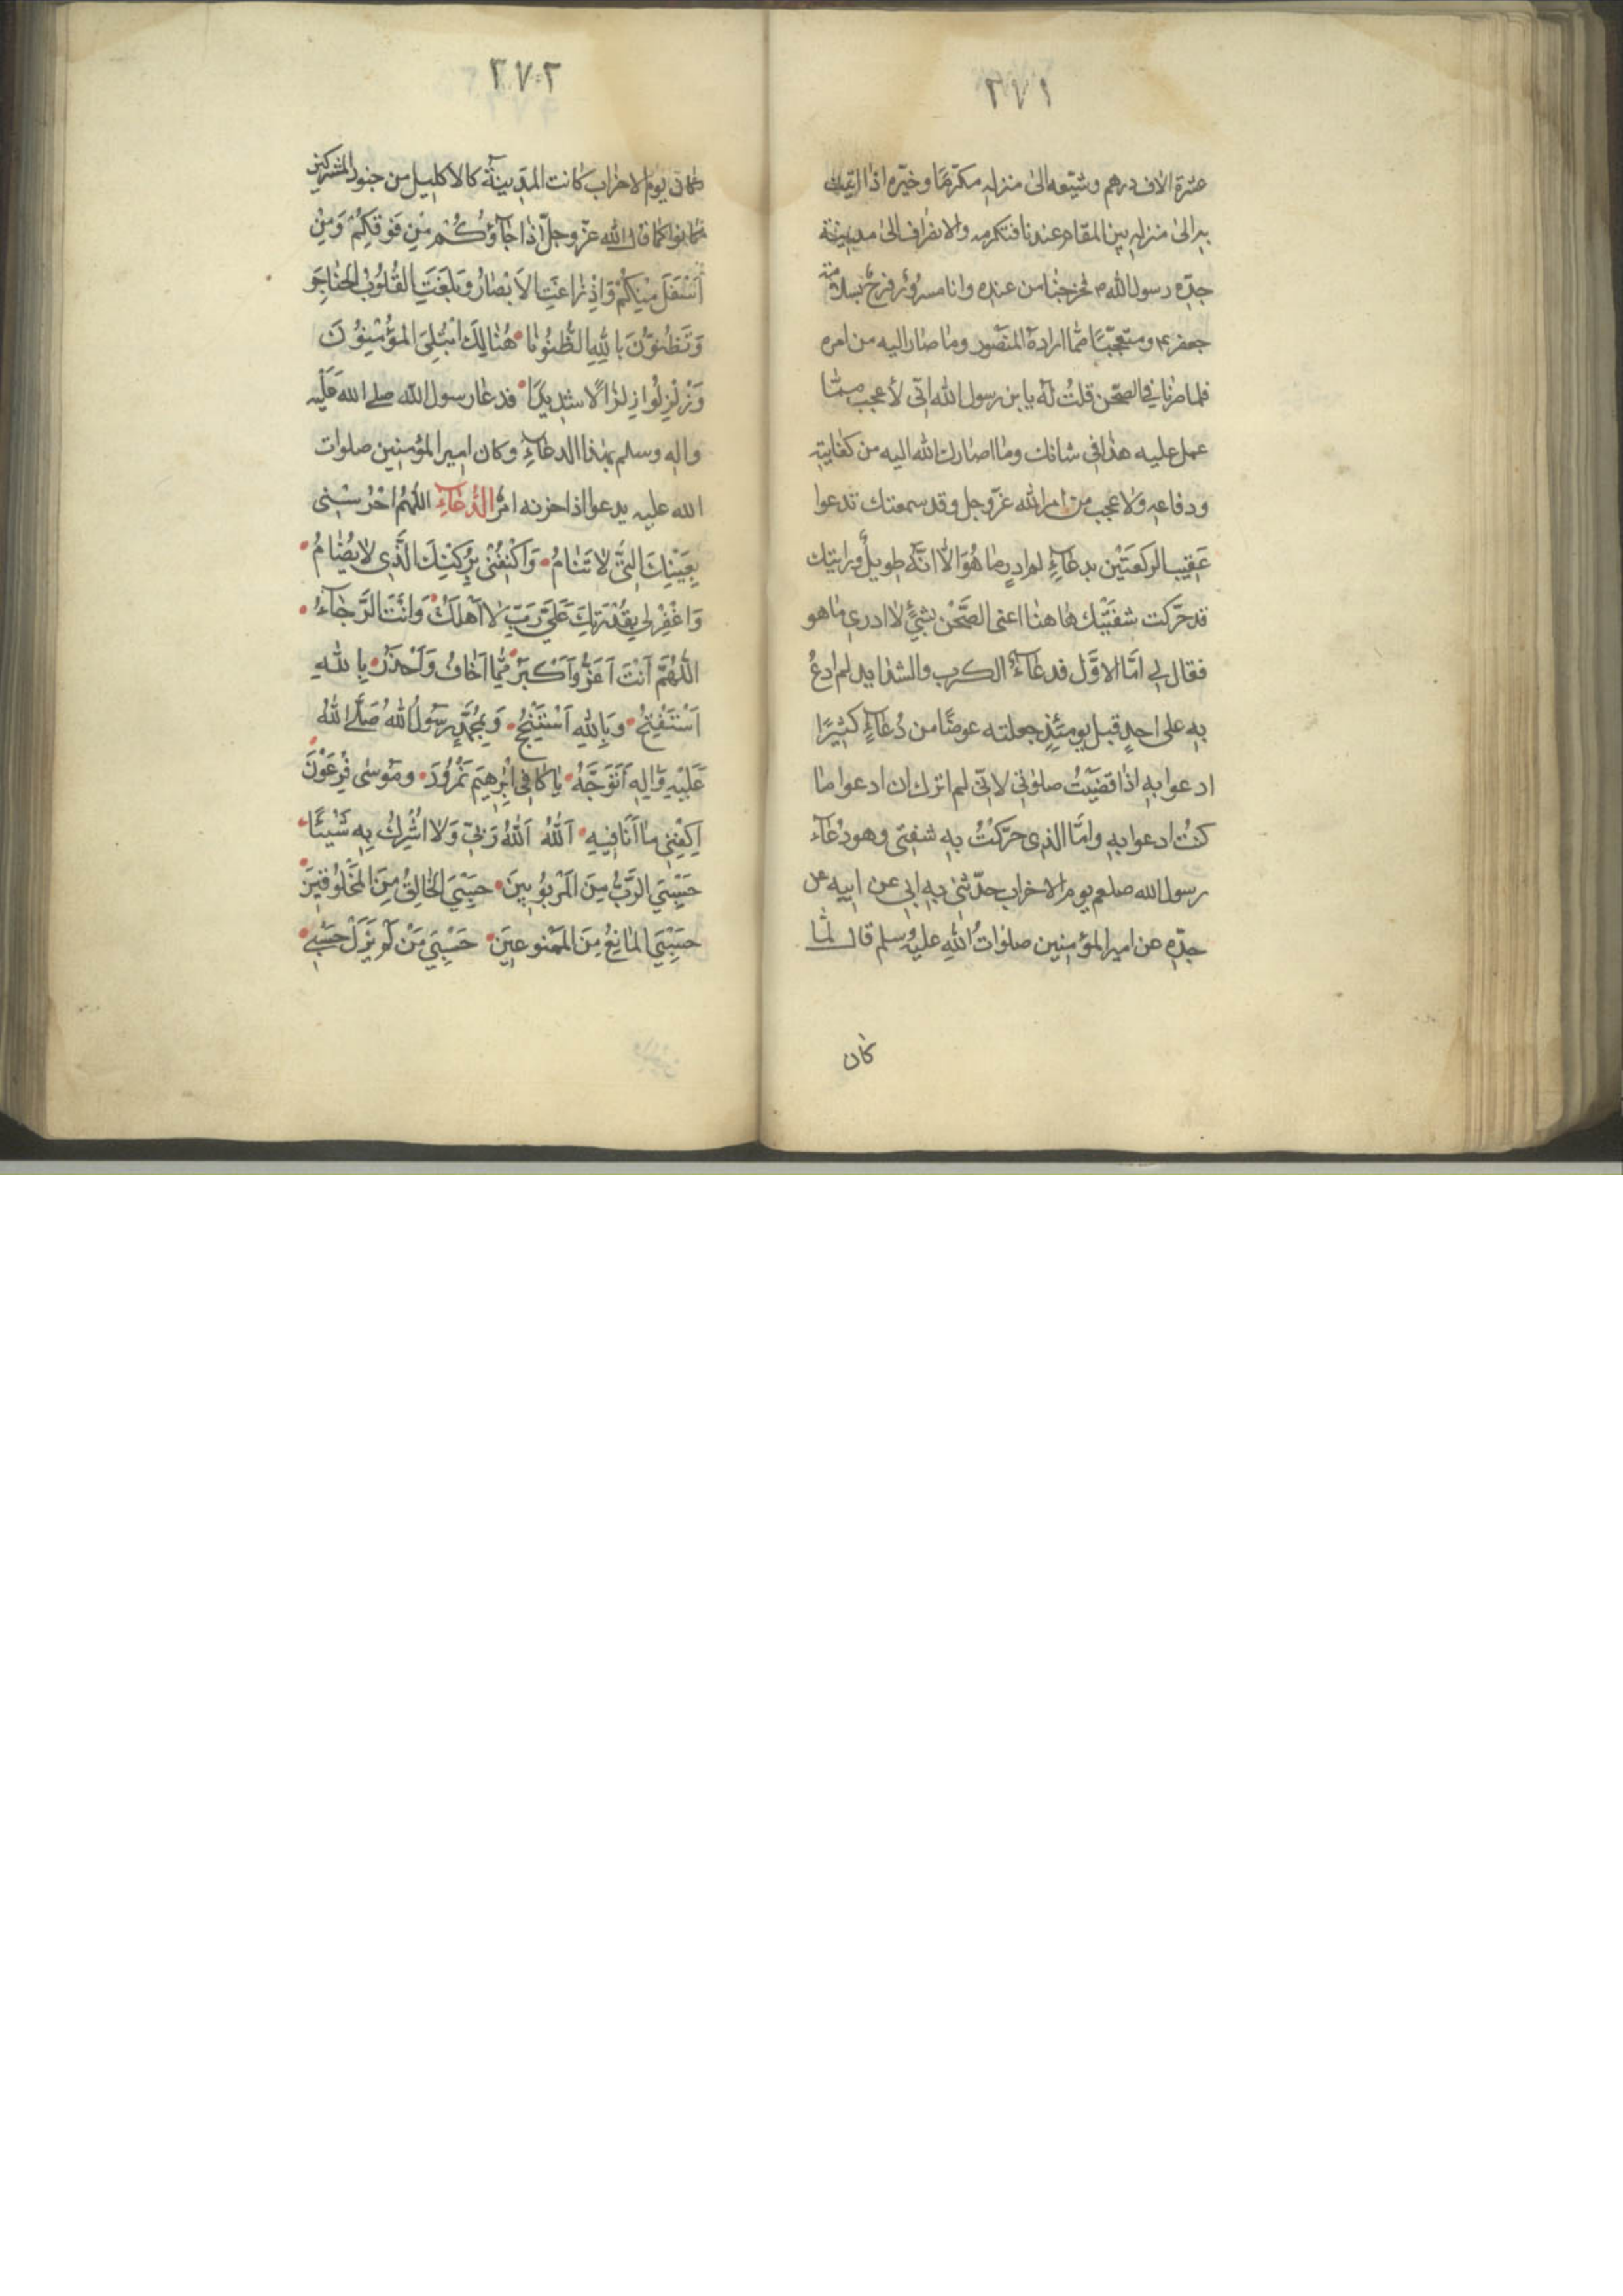 ٢٧١
عشرة الاف درهم وشيّعه الى منزله مكرّمًا وخيّره اذا اتيت
به الى منزله بين المقام عندنا فنكرمه والانصراف الى مدينة
جدّه رسول الله ص فخرجنا من عنده وانا مسرورٌ فرحٌ بسلامة
جعفر ع ومتعجّبًا ممّا اراده المنصور وما صار اليه من امره
فلما صرنا في الصّحن قلتُ له يا بن رسول الله انّى لأعجب ممّا
عمل عليه هذا فى شانك وما اصارك الله اليه من كفايته
ودفاعه ولا عجب من امر الله عزّ وجل وقد سمعتك تدعوا
عَقِيب الركعَتَيْن بدعاءٍ لم ادرِ ما هُوَ الّا انّه طويلٌ ورايتك
قد حرّكت شفتَيْك هاهنا اعنى الصَّحْن بشئٍ لا ادرى ما هو
فقال لى امَّا الاوَّل فدعاءُ الكرب والشدايد لم ادعُ
به على احدٍ قبل يومئذٍ جعلته عوضًا من دُعاءٍ كثيرًا
ادعوا به اذا قضَيْتُ صلوتى لانّى لم اترك ان ادعوا ما
كنتُ ادعوا به وامَّا الذى حرّكتُ به شفتى وهو دُعاء
رسول الله صلعم يوم الاحزاب حدّثنى به ابى عن ابيه عن
جدّه عن امير المؤمنين صلوٰاتُ اللهِ عليه وسلم قال لمّا
كان
٢٧٢
كان يوم الاحزاب كانت المدِينَةُ كالاكليل من جنود المشركين
كانوا كما قال الله عزّ وجلّ اذا جاؤُكُم مِنْ فَوْقِكُمْ وَمِنْ
اَسْفَلَ مِنْكُمْ وَاِذْ زاغَتِ الاَبْصارُ وَبَلَغَتِ القُلُوبُ الحَناجِرَ
وَتَظُنّوُنَ بِاللهِ الظُّنُونَا هُنالِكَ ابْتُلِىَ المُؤْمِنُونَ
وَزُلْزِلُوا زِلْزالًا شَدِيدًا فدعا رسول الله صلى الله عَلَيْه
واله وسلم بهذا الدعاءِ وكان امير المؤمنين صلوات
الله عليه يدعوا اذا حزنه امرٌ الدُّعاءِ اللّٰهُمَّ احْرُسْنِى
بِعَيْنِكَ الَّتِى لا تَنامُ وَاكْنِفْنِى بِرُكْنِكَ الَّذِى لا يُضامُ
وَاغْفِرْ لِى بِقُدْرَتِكَ عَلَىَّ رَبِّ لا اَهْلَكُ وَاَنْتَ الرَّجاءُ
اللّٰهُمَّ اَنْتَ اَعَزُّ وَاَكْبَرُ مِمَّا اَخافُ وَاَحْذَرُ بِاللهِ
اَسْتَفْتِحُ وَبِاللهِ اَسْتَنْجِحُ وَبِمُحَمَّدٍ رَسُولُ اللهُ صَلَّى اللهُ
عَلَيْهِ وَالِهِ اَتَوَجَّهُ يا كافِىَ اِبْرٰهِيمَ نَمْرُودَ وَمُوسٰى فِرْعَوْنَ
اِكْفِنِى ما اَنَا فِيهِ اَللهُ اَللهُ رَبِّى وَلا اُشْرِكُ بِهِ شَيْئًا
حَسْبِىَ الرَّبُّ مِنَ المَرْبُوبِينَ حَسْبِىَ الخالِقُ مِنَ المَخْلُوقِينَ
حَسْبِىَ المانِعُ مِنَ المَمْنُوعِينَ حَسْبِىَ مَنْ لَمْ يَزَلْ حَسْبِى